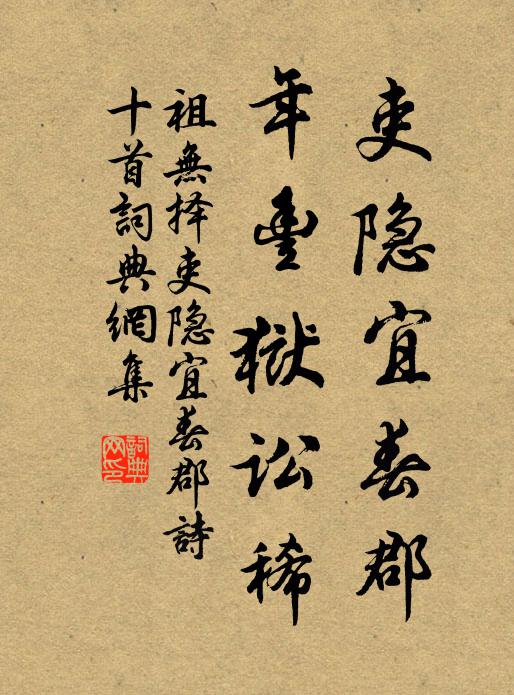 吏隐宜春郡
年豊獄讼稀
祖無择吏隐宜春郡詩
十首詞典網集
詞典网印